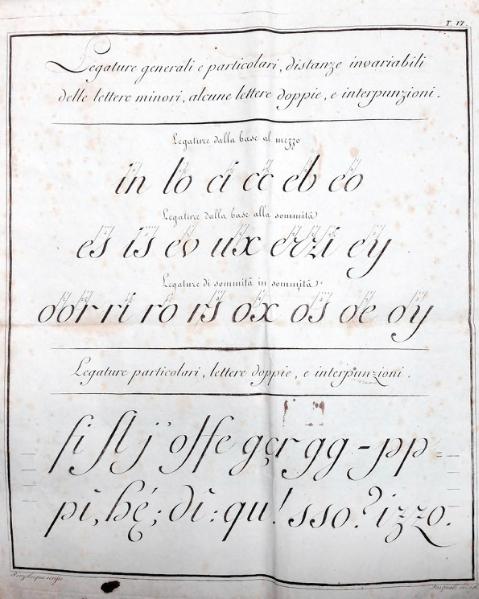 T. 17.
Legature generali e particolari, distanze invariabili
delle lettere minori, alcune lettere doppie, e interpunzioni.
Legature dalla base al mezzo
in lo ci cc eb eo
Legature dalla base alla sommità
es is ev ux
ey
Legature di sommità in sommità
oo rr ri ro rs ox os oe oy
Legature particolari, lettere doppie, e interpunzioni.
fi fl j' offe ger gg - pp =
pi, hé; di: qu! sso? izzo.